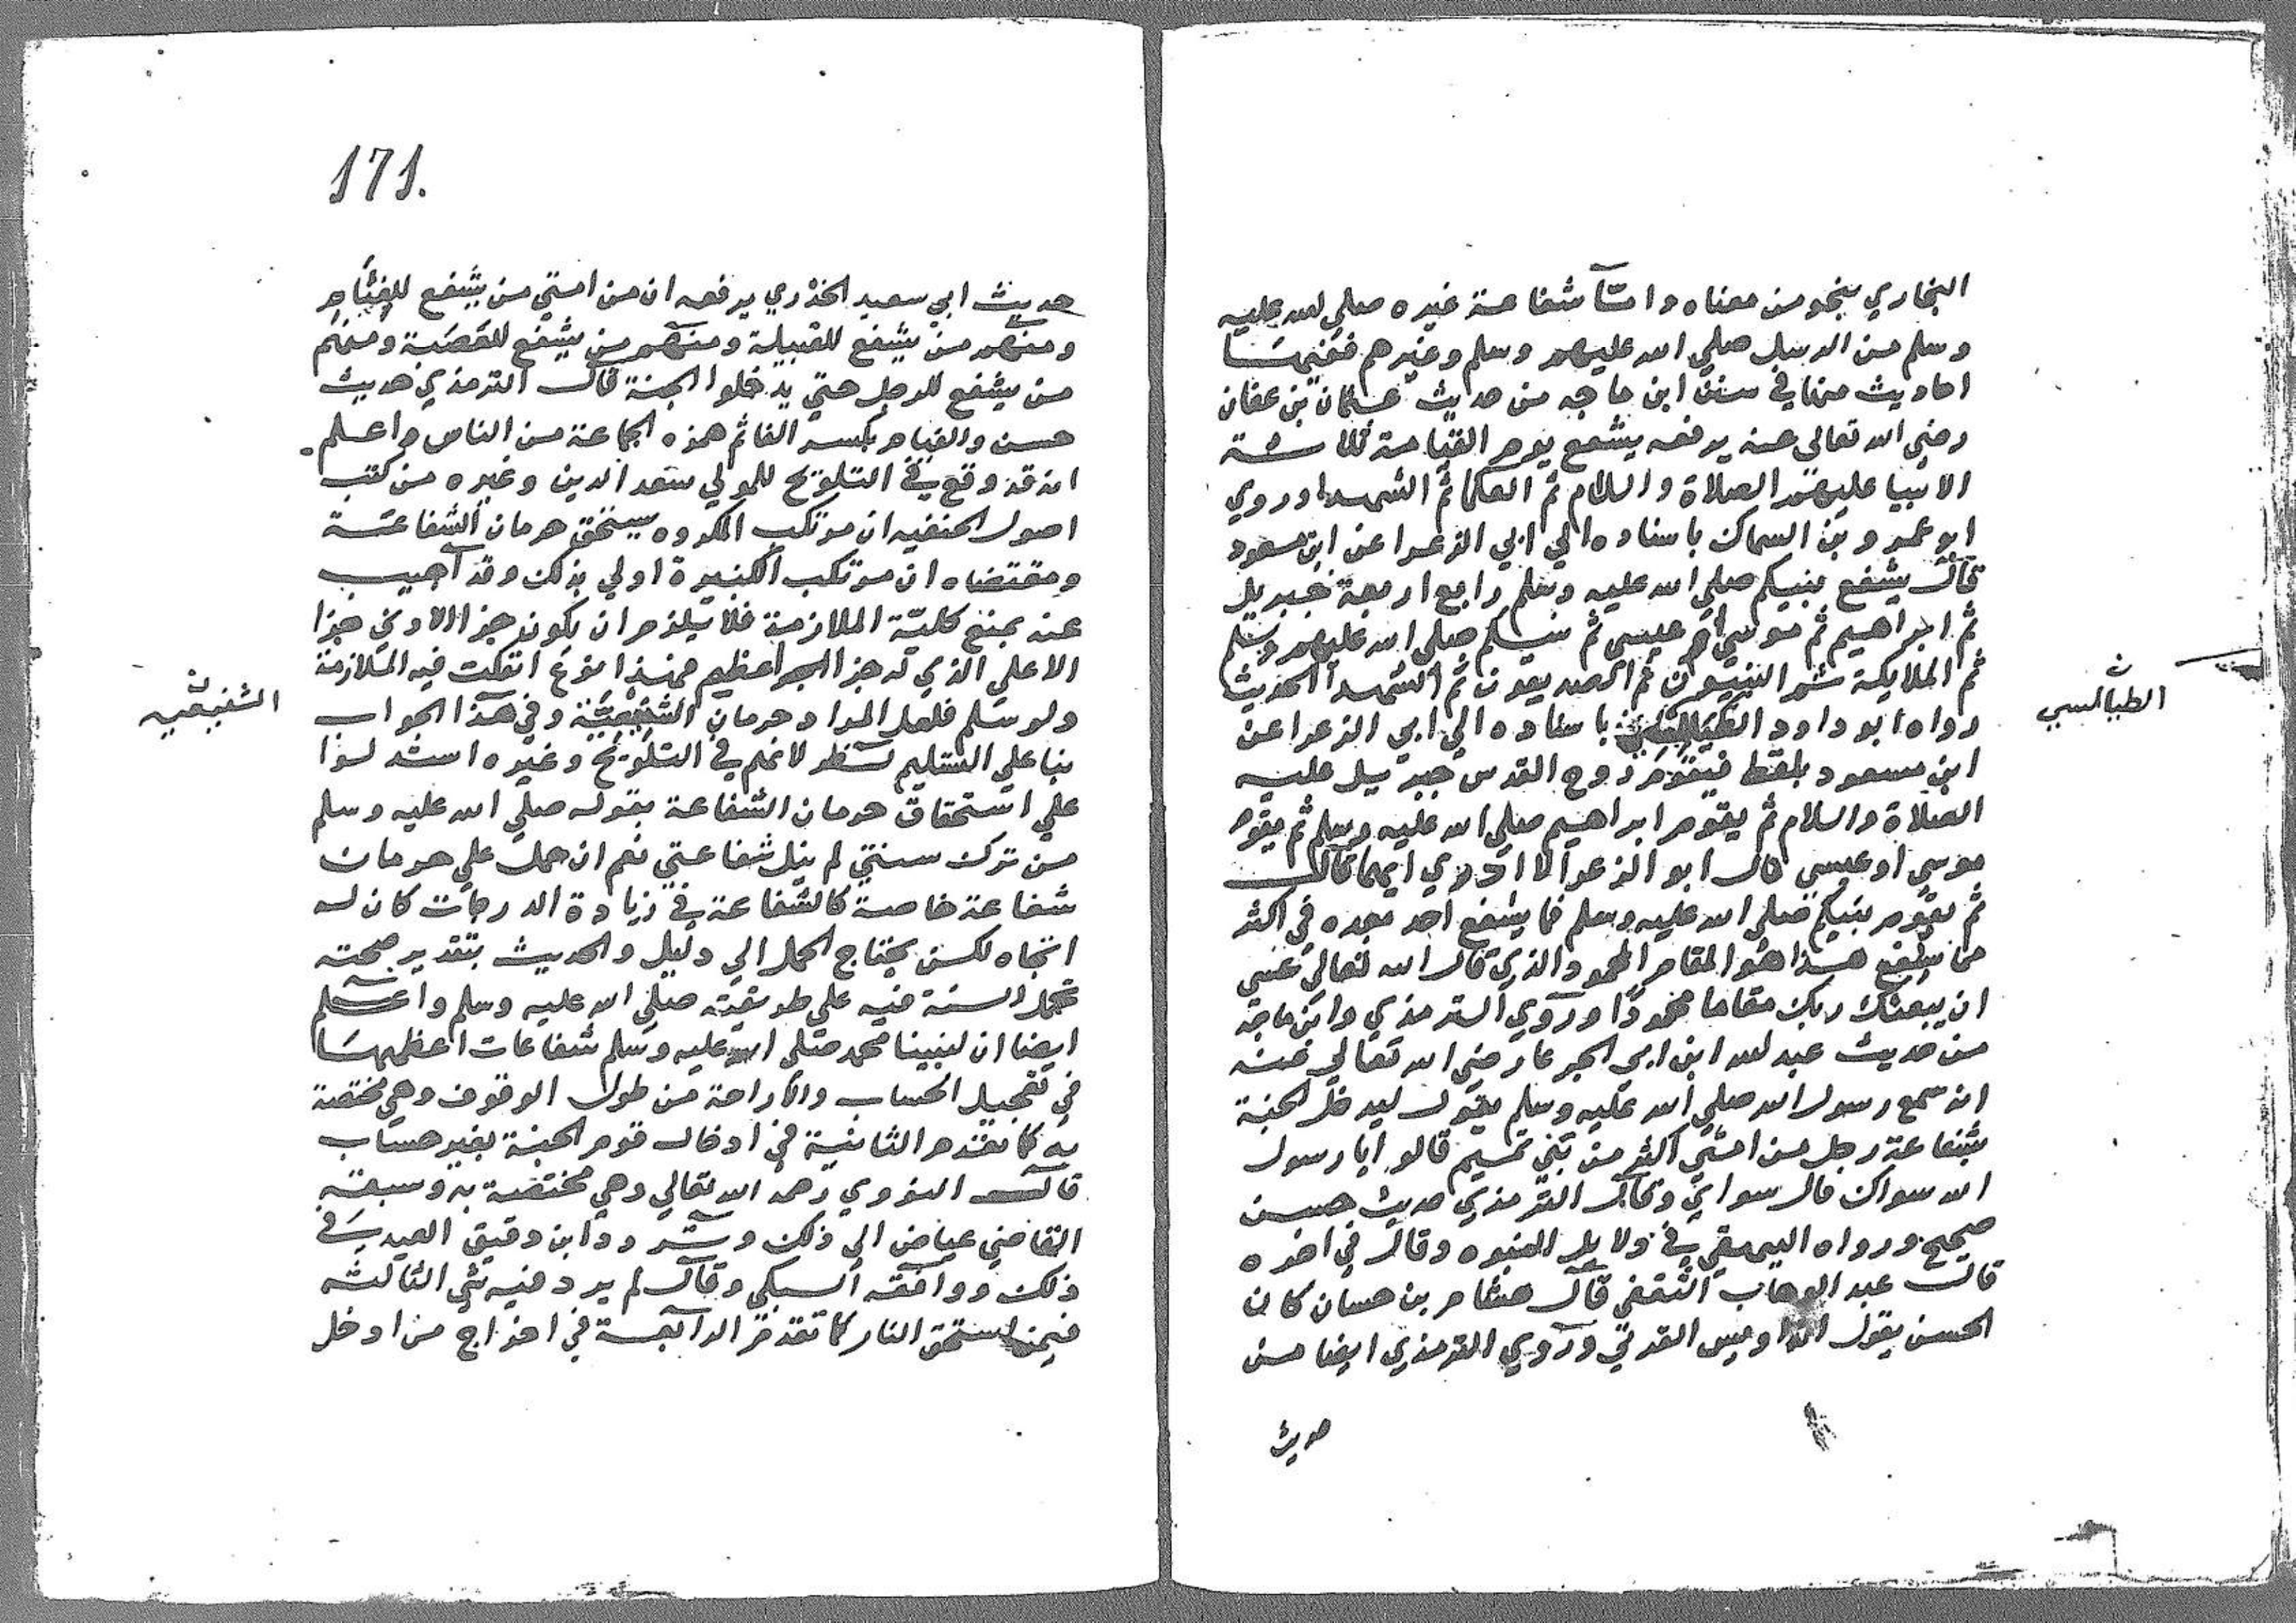 البخاري بنحو من معناه واما شفاعة غيره صلي الله عليه
وسلم من الرسل صلي الله عليهم وسلم وغيرهم ففيها
احاديث منها في سنن ابن ماجه من حديث عثمان بن عفان
رضي الله تعالى عنه يرفعه يشفع يوم القيامة ثلاثة
الانبيا عليهم الصلاة والسلام ثم العلما ثم الشهدا وروي
ابو عمرو بن السماك باسناده الي ابي الزعرا عن ابن مسعود
قال يشفع نبيكم صلي الله عليه وسلم رابع اربعة جبريل
ثم ابراهيم ثم موسي او عيسي ثم نبيكم صلي الله عليهم وسلم
ثم الملايكة ثم النبيون ثم الصديقون ثم الشهدا الحديث
رواه ابو داود باسناده الي ابي الزعرا عن
الطيالسي
ابن مسعود بلفظ فيقوم روح القدس جبريل عليه
الصلاة والسلام ثم يقوم ابراهيم صلي الله عليه وسلم ثم يقوم
موسي او عيسي قال ابو الزعرا لا ادري ايهما قال
ثم يقوم نبيكم صلي الله عليه وسلم فما يشفع احد بعده في اكثر
مما يشفع هذا هو المقام المحمود الذي قال الله تعالي عسي
ان يبعثك ربك مقاما محمودا وروي الترمذي وابن ماجه
من حديث عبد الله ابن ابي الجدعا رضي الله تعالي عنه
انه سمع رسول الله صلي الله عليه وسلم يقول ليدخل الجنة
بشفاعة رجل من امتي اكثر من بني تميم قالوا يا رسول
الله سواك قال سواي وقال الترمذي حديث حسن
صحيح ورواه البيهقي في دلايل النبوه وقال في اخره
قال عبد الوهاب الثقفي قال هشام بن حسان كان
الحسن يقول انه اويس القرني وروي الترمذي ايضا من
حديث
171.
حديث ابي سعيد الخدري يرفعه ان من امتي من يشفع للفئام
ومنهم من يشفع للقبيلة ومنهم من يشفع للعصبة ومنهم
من يشفع للرجل حتي يدخلوا الجنة قال الترمذي حديث
حسن والفيام بكسر الفا ثم همزه الجماعة من الناس واعلم
انه قد وقع في التلويح للمولي سعد الدين وغيره من كتب
اصول الحنفيه ان مرتكب المكروه يستحق حرمان الشفاعة
ومقتضاه ان مرتكب الكبيرة اولي بذلك وقد اجيب
عنه بمنع كلية الملازمة فلا يلزم ان يكون جزا الادني جزا
الاعلي الذي له جزا اخر عظيم فهذا نوع انفكت فيه الملازمة
ولو سلم فلعل المراد حرمان الشفيعية وفي هذا الجواب
الشفيعيه
بنا علي التسليم نظر لانهم في التلويح وغيره استدلوا
علي استحقاق حرمان الشفاعة بقوله صلي الله عليه وسلم
من ترك سنتي لم ينل شفاعتي نعم ان حمل علي حرمان
شفاعة خاصة كالشفاعة في زيادة الدرجات كان له
اتجاه لكن يحتاج الحمل الي دليل والحديث بتقدير صحته
تحمل السنة فيه علي طريقته صلي الله عليه وسلم واعلم
ايضا ان لنبينا محمد صلي الله عليه وسلم شفاعات اعظمها
في تعجيل الحساب والاراحة من طول الوقوف وهي مختصة
به كما تقدم الثانية في ادخال قوم الجنة بغير حساب
قال النووي رحمه الله تعالي وهي مختصة به وسبقه
القاضي عياض الي ذلك وتردد ابن دقيق العيد في
ذلك ووافقه السبكي وقال لم يرد فيه شي الثالثه
فيمن استحق النار كما تقدم الرابعة في اخراج من ادخل